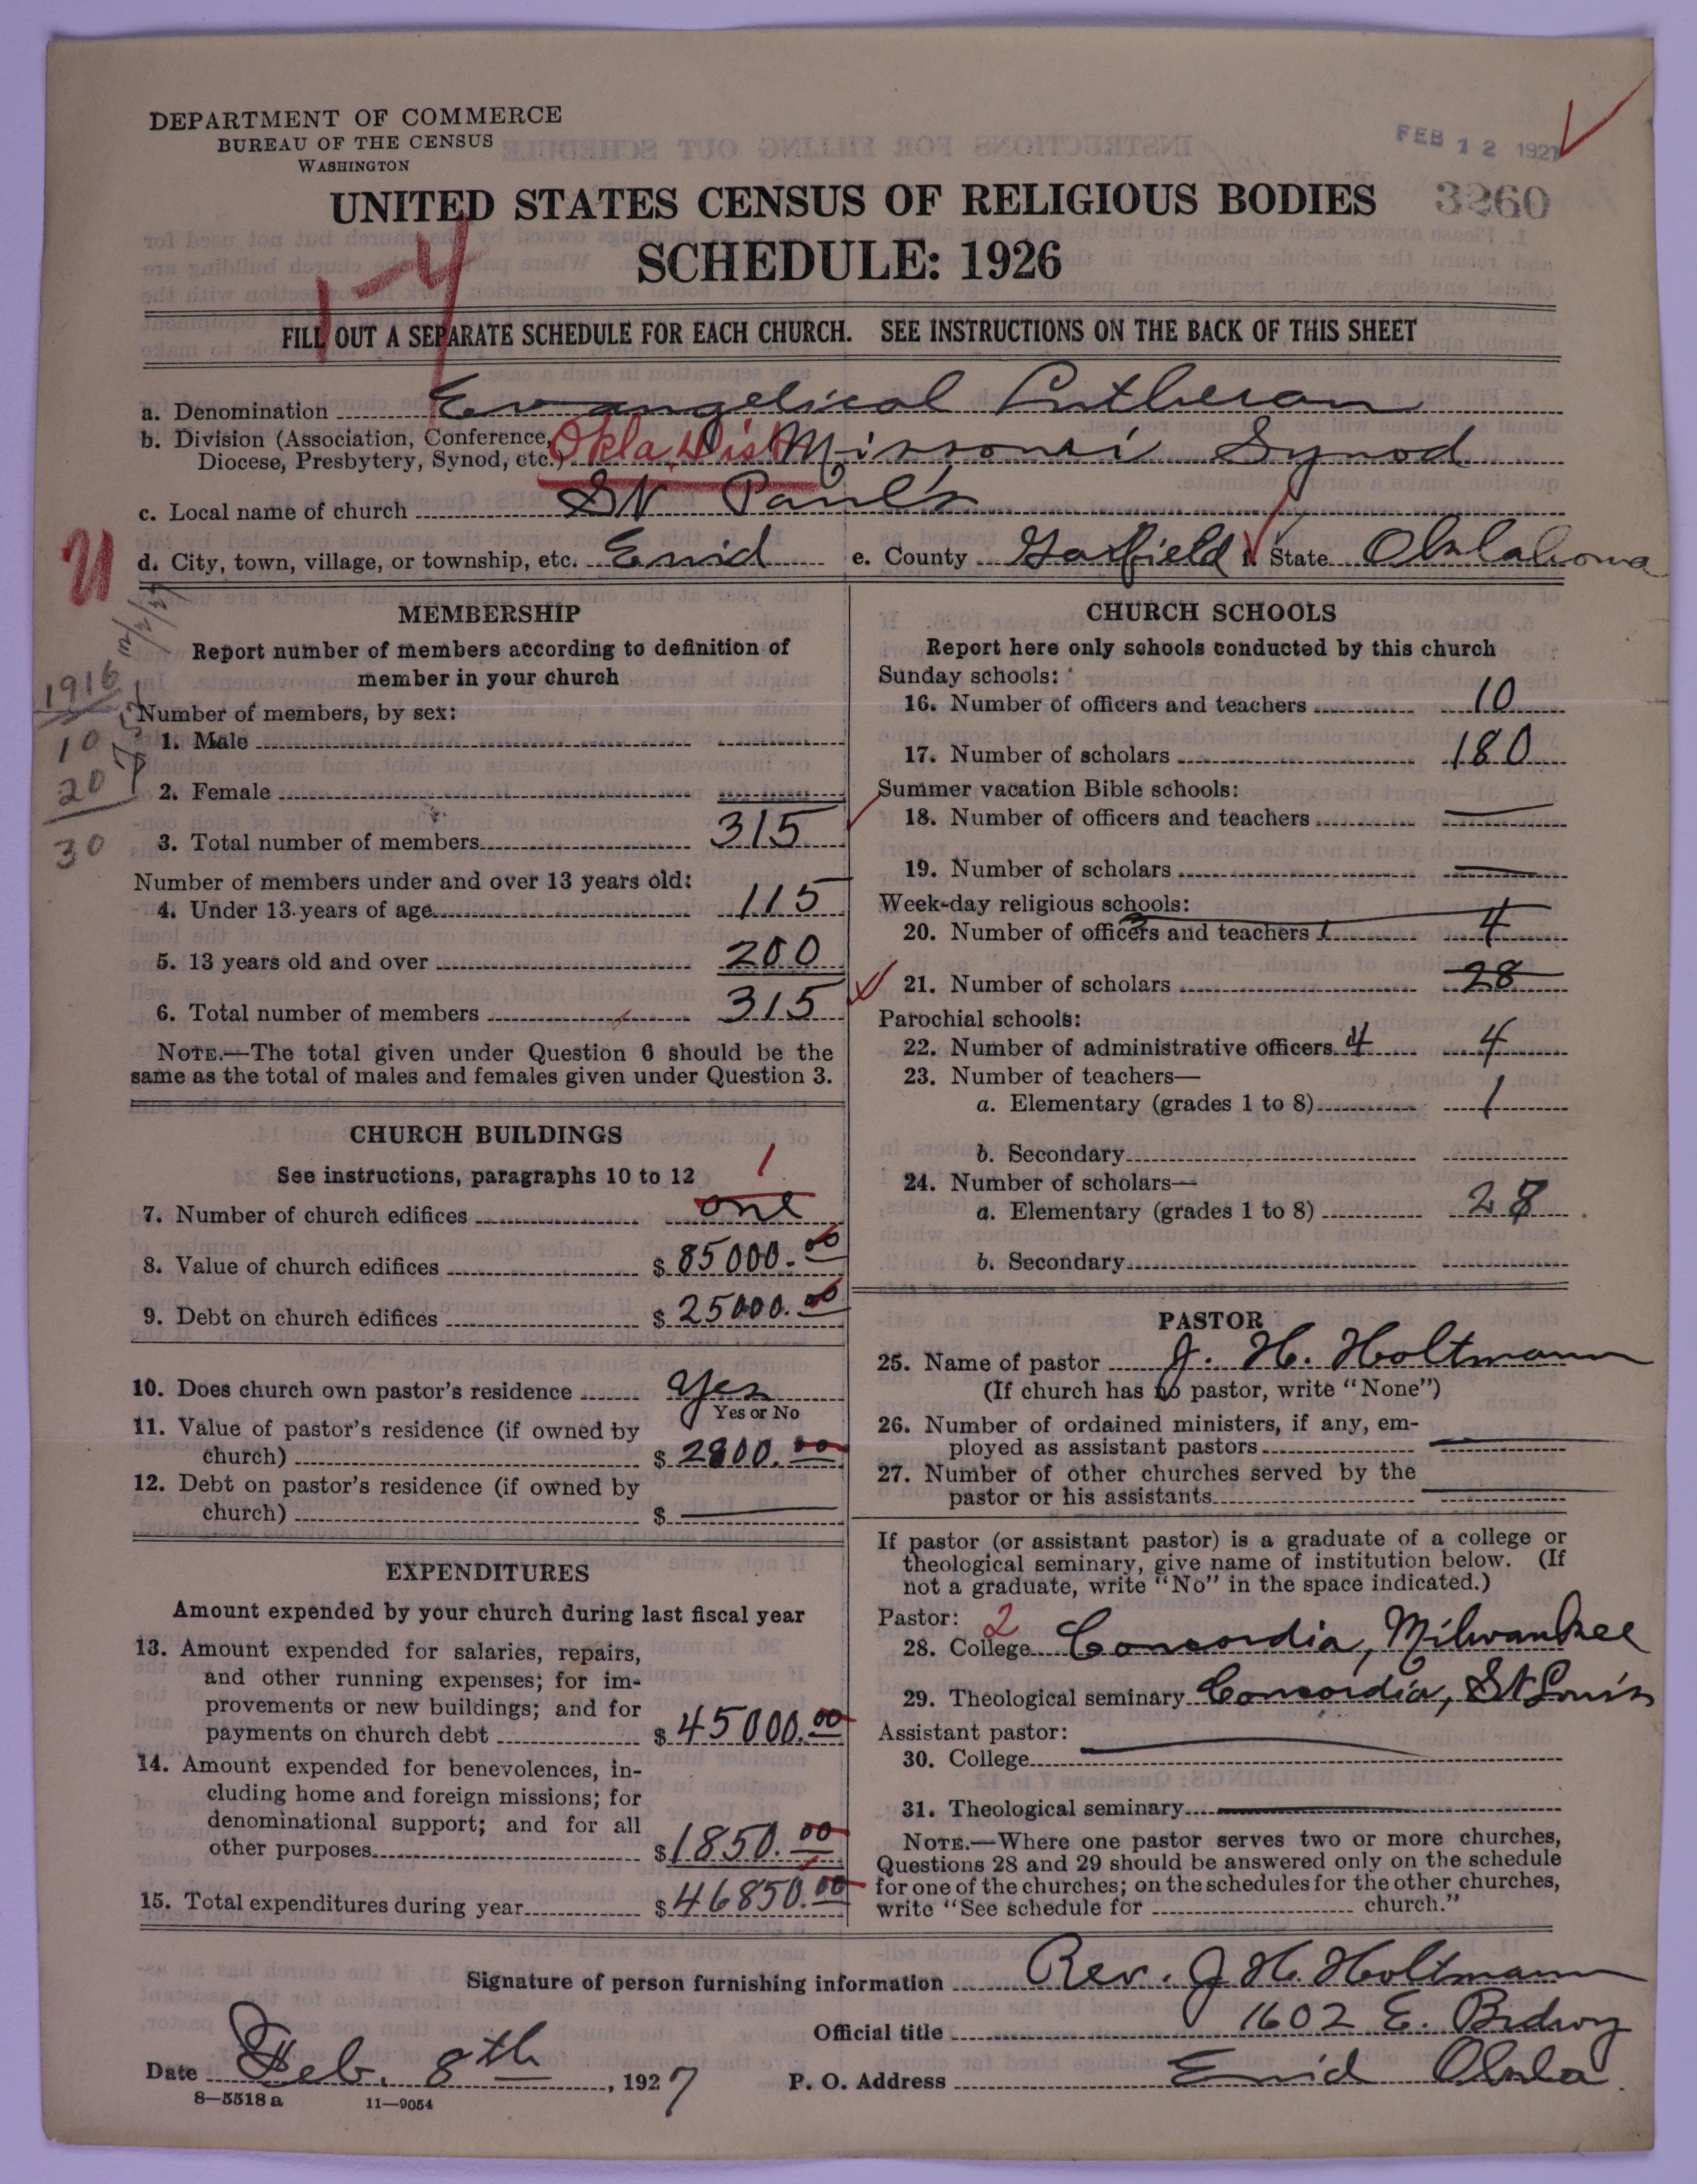 DEPARTMENT OF COMMERCE
BUREAU OF THE CENSUS
WASHINGTON
FEB 12 1927
UNITED STATES CENSUS OF RELIGIOUS BODIES 3260
SCHEDULE: 1926
1-4
FILL OUT A SEPARATE SCHEDULE FOR EACH CHURCH. SEE INSTRUCTIONS ON THE BACK OF THIS SHEET
a. Denomination Evangelical Lutheran
b. Division (Association, Conference, Diocese, Presbytery, Synod, etc.) Okla. Dist Missouri Synod
c. Local name of church St Paul's
d. City, town, village, or township, etc. Enid e. County Garfield f. State Oklahoma
U
1916
10
20
30
MEMBERSHIP
Report number of members according to definition of
member in your church
Number of members, by sex:
1. Male
2. Female
3. Total number of members 315
Number of members under and over 13 years old:
4. Under 13 years of age 115
5. 13 years old and over 200
6. Total number of members 315
NOTE.—The total given under Question 6 should be the
same as the total of males and females given under Question 3.
CHURCH BUILDINGS
See instructions, paragraphs 10 to 12
1
7. Number of church edifices one
8. Value of church edifices $ 85000.00
9. Debt on church edifices $ 25000.00
10. Does church own pastor's residence Yes
Yes or No
11. Value of pastor's residence (if owned by
church) $ 2800.00
12. Debt on pastor's residence (if owned by
church) $
EXPENDITURES
Amount expended by your church during last fiscal year
13. Amount expended for salaries, repairs,
and other running expenses; for im-
provements or new buildings; and for
payments on church debt $ 45000.00
14. Amount expended for benevolences, in-
cluding home and foreign missions; for
denominational support; and for all
other purposes $ 1850.00
15. Total expenditures during year $ 46850.00
CHURCH SCHOOLS
Report here only schools conducted by this church
Sunday schools:
16. Number of officers and teachers 10
17. Number of scholars 180
Summer vacation Bible schools:
18. Number of officers and teachers
19. Number of scholars
Week-day religious schools:
20. Number of officers and teachers 4
21. Number of scholars 28
Parochial schools:
22. Number of administrative officers 4 4
23. Number of teachers—
a. Elementary (grades 1 to 8) 1
b. Secondary
24. Number of scholars—
a. Elementary (grades 1 to 8) 28
b. Secondary
PASTOR
25. Name of pastor J. H. Holtmann
(If church has no pastor, write "None")
26. Number of ordained ministers, if any, em-
ployed as assistant pastors
27. Number of other churches served by the
pastor or his assistants
If pastor (or assistant pastor) is a graduate of a college or
theological seminary, give name of institution below. (If
not a graduate, write "No" in the space indicated.)
Pastor: 2
28. College Concordia, Milwaukee
29. Theological seminary Concordia, St Louis
Assistant pastor:
30. College
31. Theological seminary
NOTE.—Where one pastor serves two or more churches,
Questions 28 and 29 should be answered only on the schedule
for one of the churches; on the schedules for the other churches,
write "See schedule for church."
Signature of person furnishing information Rev. J. H. Holtmann
Official title 1602 E. Brdwy
Date Feb. 8th, 1927 P. O. Address Enid Okla.
8—5518 a 11—9054